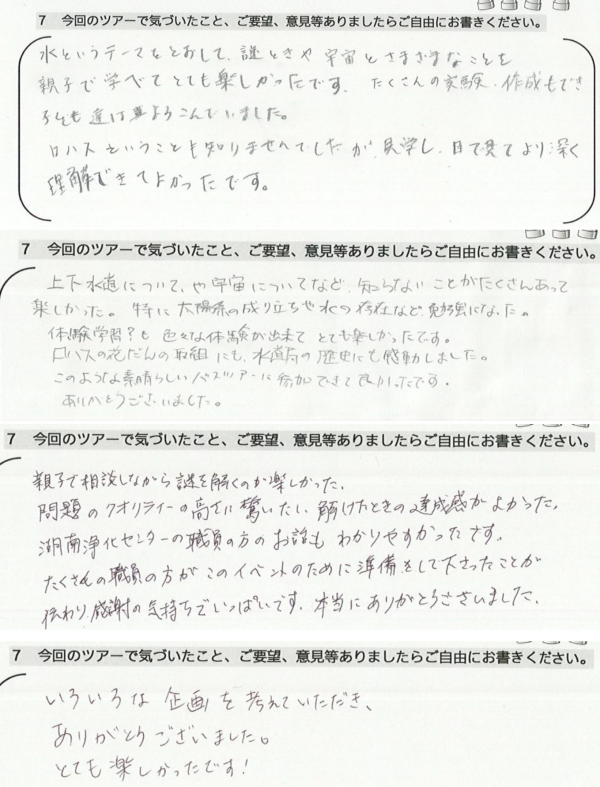 7 今回のツアーで気づいたこと、ご要望、意見等ありましたらご自由にお書きください。
水というテーマをとおして、謎ときや宇宙とさまざまなことを
親子で学べてとても楽しかったです。たくさんの実験、作成もでき
子ども達は よろこんでいました。
ロハスということも知りませんでしたが、見学し、目で見てより深く
理解できてよかったです。
7 今回のツアーで気づいたこと、ご要望、意見等ありましたらご自由にお書きください。
上下水道について、や宇宙についてなど、知らないことがたくさんあって
楽しかった。特に太陽系の成り立ちや水の存在など勉強になった。
体験学習?も色々な体験が出来てとても楽しかったです。
ロハスの花だんの取組にも、水道局の歴史にも感動しました。
このような素晴らしいバスツアーに参加できて良かったです。
ありがとうございました。
7 今回のツアーで気づいたこと、ご要望、意見等ありましたらご自由にお書きください。
親子で相談しながら謎を解くのが楽しかった。
問題のクオリティーの高さに驚いたし、解けたときの達成感がよかった。
湖南浄化センターの職員の方のお話もわかりやすかったです。
たくさんの職員の方がこのイベントのために準備をして下さったことが
伝わり感謝の気持ちでいっぱいです。本当にありがとうございました。
7 今回のツアーで気づいたこと、ご要望、意見等ありましたらご自由にお書きください。
いろいろな企画を考えていただき、
ありがとうございました。
とても楽しかったです!